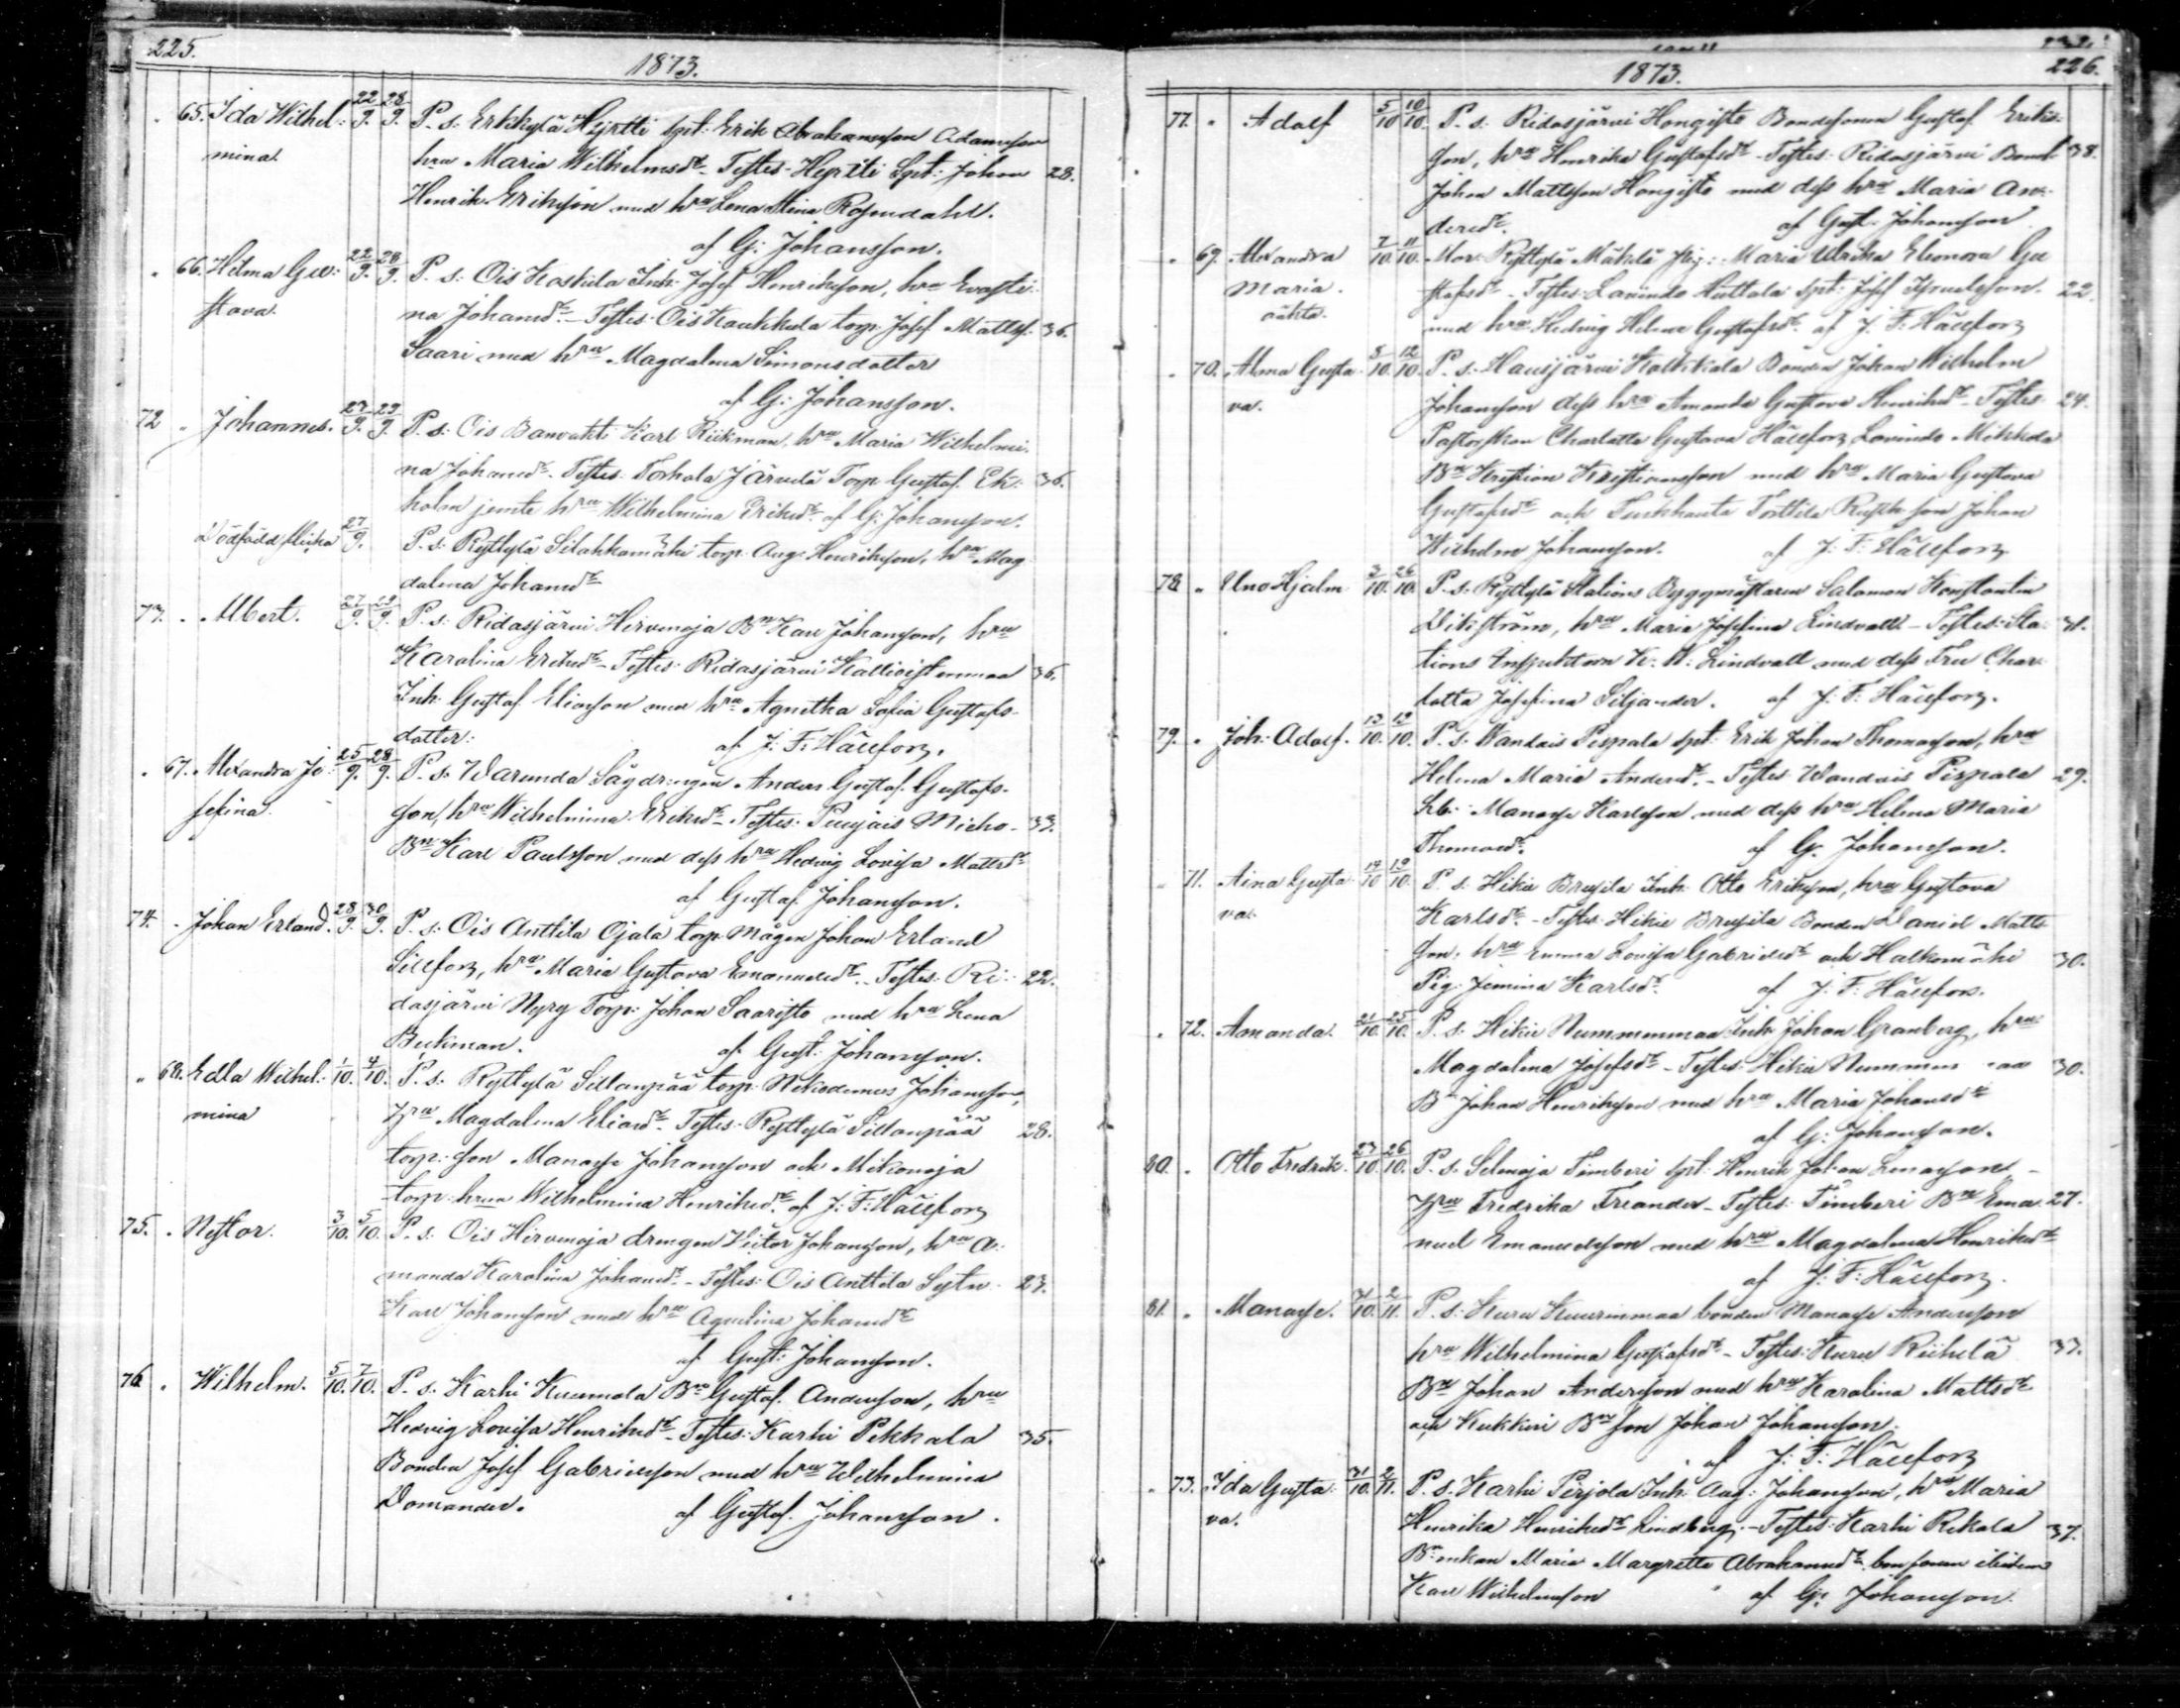 225.
1873.
65. Ida Wilhel: 22/9. 28/9. P. s. Erkkylä Hyrtti spt: Erik Abrahamsson Adamsson
mina. hru Maria Wilhelmsdr - Testes: Hyrtti Spt: Johan 28.
Henrik Eriksson med hru Lena Stina Rosendahl.
af G: Johansson.
66. Hilma Gu: 22/9. 28/9. P. s: Ois Koskela Inh: Josef Henriksson, hru Evasti-
stava na Johansdr - Testes: Ois Kaukkula torp: Josef Mattss. 36.
Saari med hru Magdalena Simonsdotter
af G: Johansson.
72 Johannes. 27/9. 29/9. P. s: Ois Banvakt Karl Rickman, hru Maria Wilhelmi-
na Johansdr. Testes: Torhola Järvelä Torp. Gustaf Ek: 36.
holm jemte hru Wilhelmina Eriksdr. af G: Johansson.
Dödfödd flicka 27/9. P. s. Ryttylä Silakkamäki torp. Aug. Henriksson, hru Mag
dalena Johansdr
73. Albert. 27/9. 29/9. P. s: Ridasjärvi Hirvenoja Bn Karl Johansson, hru
Karolina Eriksdr - Testes: Ridasjärvi Kallioistenmaa 36.
Inh. Gustaf Eliasson med hru Agnetha Sofia Gustafs-
dotter: af J: F: Hällfors.
67. Alexandra Jo: 25/9. 28/9. P. s. Warunda Sågdrengen Anders Gustaf Gustafs-
sefina. son, hru Wilhelmina Eriksdr - Testes: Puujais Micko- 33.
Bn Karl Paulsson med dess hru Hedvig Lovisa Mattsdr
af Gustaf Johansson.
74. Johan Erland. 28/9. 30/9. P. s: Ois Anttila Ojala torp. Mågen Johan Erland
Sillfors, hru Maria Gustava Emanuelsdr. - Testes: Ri- 22.
dasjärvi Nyry Torp: Johan Saaristo med hru Lena
Beckman. af Gust: Johansson.
68. Edla Wilhel: 1/10. 4/10. P. s. Ryttylä Sillanpää torp: Nikodemus Johansson,
mina hru Magdalena Eliasdr. Testes: Ryttylä Sillanpää 28.
torp: son Manasse Johansson och Mikonoja
torp: hru Wilhelmina Henriksdr. af J: F: Hällfors
75. Nestor. 3/10. 5/10. P. s: Ois Hirvenoja drengen Victor Johansson, hru A:
manda Karolina Johansdr - Testes: Ois Anttila Sytn. 23.
Karl Johansson med hru Aqvilina Johansdr
af Gust: Johansson.
76. Wilhelm. 5/10. 7/10. P. s. Karhi Kuumola Bn Gustaf Andersson, hru
Hedvig Lovisa Henriksdr - Testes: Karhi Pekkala 35.
Bonden Josef Gabrielsson med hru Wilhelmina
Domander. af Gustaf Johansson.
226.
1873.
77. Adolf 5/10 10/10. P. s. Ridasjärvi Hongisto Bondesonen Gustaf Eriks-
son, hru Henrika Gustafsdr - Testes: Ridasjärvi Bond. 38.
Johan Mattsson Hongisto med dess hru Maria An-
dersdr. af Gust: Johansson
69. Alexandra 7/10. 11/10. Mor: Ryttylä Mäkelä Pig: Maria Ulrika Eleonora Gu
Maria. stafsdr - Testes: Lavinto Huttala Spt: Josef Isaelsson. 22.
oäkta. med hru Hedvig Helena Gustafsdr. af J. F: Hällfors
70. Alma Gusta 8/10. 12/10. P. s. Hausjärvi Kalkkala Bonden Johan Wilhelm
va. Johansson dess hru Amanda Gustava Henriksdr - Testes 24.
Pastorskan Charlotta Gustava Hällfors, Lavinto Mikkola
Bn Kristian Kristiansson med hru Maria Gustava
Gustafsdr och Turkhauta Torttila Rusth. son Johan
Wilhelm Johansson. af J: F: Hällfors
78. Uno Hjalm 3/10. 26/10. P. s. Ryttylä Stations Byggmästaren Salomon Konstantin
Wikström, hru Maria Josefina Lindvall - Testes: Sta- 31.
tions Inspektorn K: A: Lindvall med dess Fru Char-
lotta Josefina Siljander. af J: F: Hällfors.
79. Joh: Adolf. 13/10. 19/10. P. s. Wandais Pispala spt: Erik Johan Thomasson, hru
Helena Maria Andersdr. - Testes Wandais Pispala 29.
Lb: Manasse Karlsson med dess hru Helena Maria
Thomasdr. af G. Johansson.
71. Aina Gusta 14/10 19/10. P. s. Hikiä Brusila Inh: Otto Eriksson, hru Gustava
va. Karlsdr. - Testes Hikiä Brusila Bonden Daniel Matts
son, hru Emma Lovisa Gabrielsdr och Halkomäki 30.
Pig: Jemina Karlsdr. af J: F: Hällfors.
72. Amanda. 21/10. 25/10. P. s. Hikiä Nummenmaa Inh: Johan Granberg, hru
Magdalena Josefsdr - Testes: Hikiä Nummen aa 30.
Bn Johan Henriksson med hru Maria Johansdr
af G: Johansson.
80. Otto Fredrik. 23/10. 26/10. P. s. Selinoja Timberi Spt: Henrik Johan Enarsson -
hru Fredrika Treander - Testes: Timberi Bn Ema 27.
nuel Emanuelsson med hru Magdalena Henriksdr
af J: F: Hällfors.
81. Manasse. 31/10. 2/11. P. s. Kuru Kuurinmaa bonden Manasse Andersson
hru Wilhelmina Gustafsdr - Testes: Kuru Riihelä 33.
Bn Johan Andersson med hru Karolina Mattsdr
och Kukkuri Bn son Johan Johansson.
af J: F: Hällfors
73. Ida Gusta 31/10. 2/11. P. s. Karhi Perjola Inh: Aug: Johansson, hru Maria
va. Henrika Henriksdr Lindberg - Testes: Karhi Rekola 37.
Maria Margretta Abrahamsdr ibidem
Karl Wilhelmsson af G: Johansson.